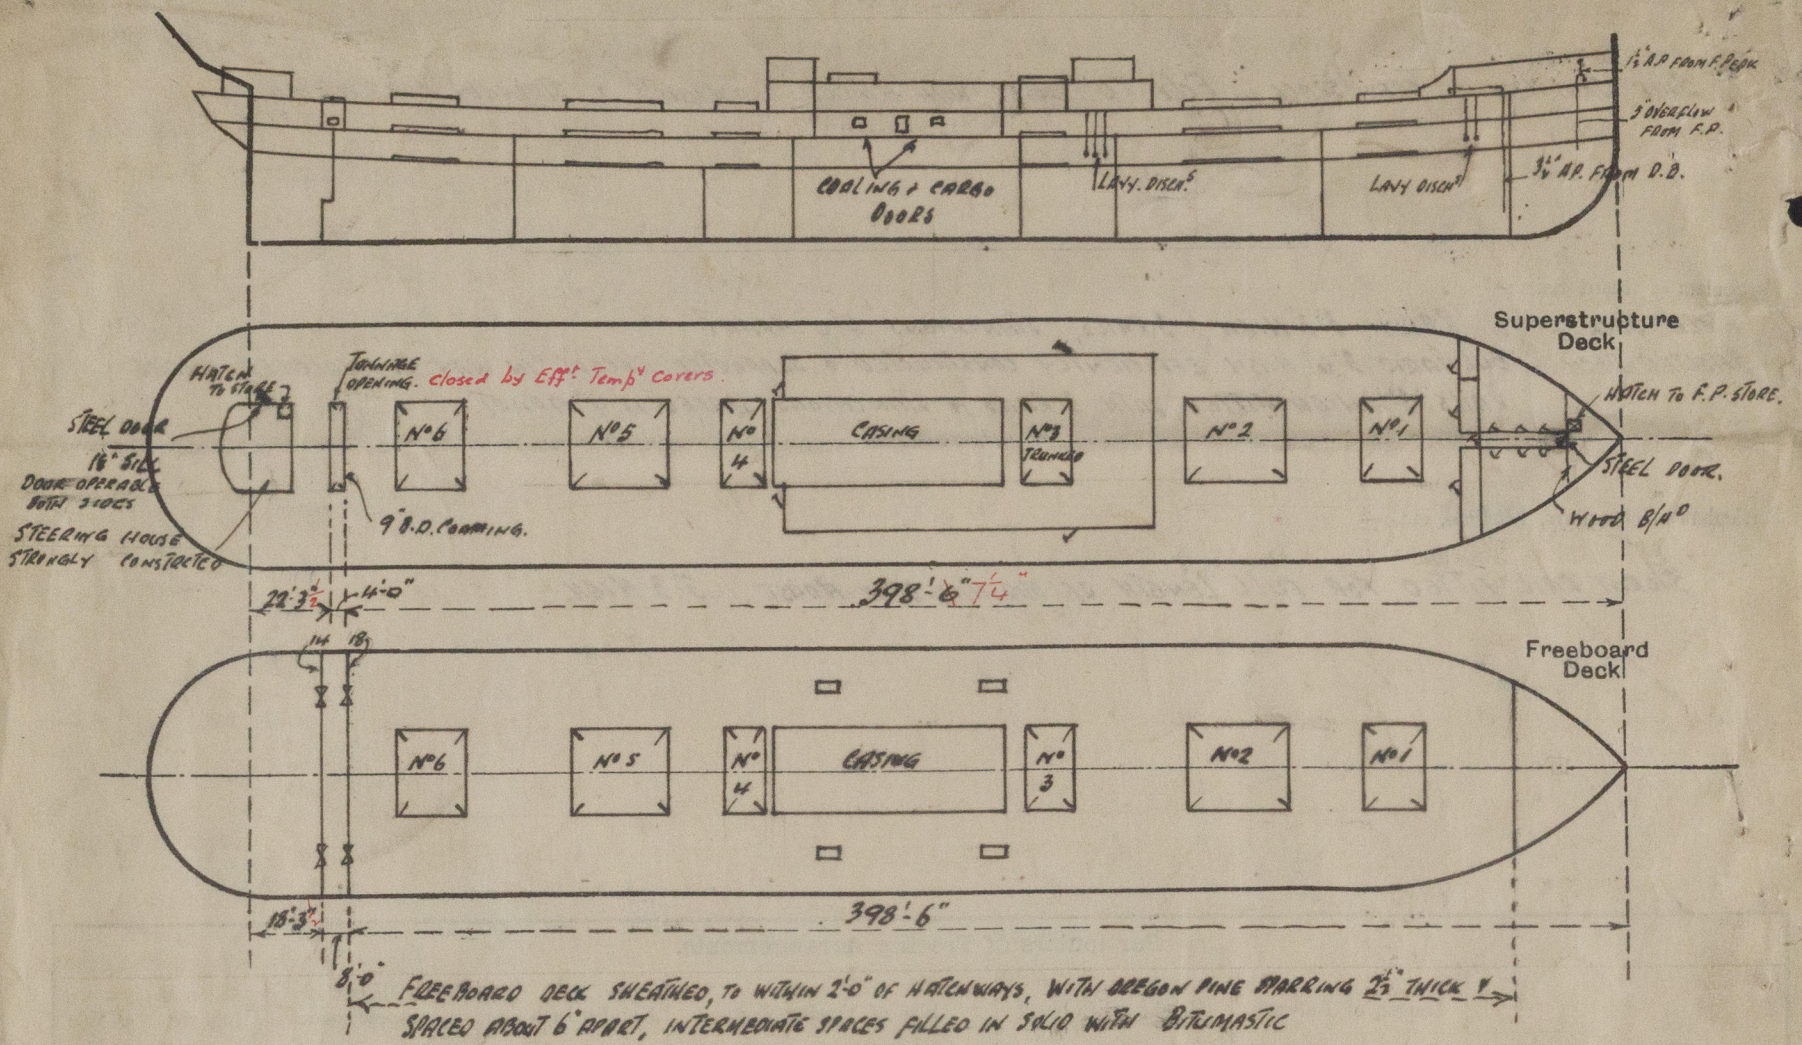 1½" A.P. FROM F. PEAK
3" OVERFLOW
FROM F.P.
A.P. FROM D.B.
COALING & CARGO
DOORS
LAVY. DISCHS
LAVY DISCHS
Superstructure
Deck
HATCH
TO STORE
TONNAGE
OPENING. closed by Efft Tempy Covers.
STEEL DOOR
18" SILL
DOOR OPERABLE
BOTH SIDES
STEERING HOUSE
STRONGLY CONSTRCTED
9" B.D. COAMING.
No 6
No 5
No
4
CASING
No 3
TRUNKED
No 2
No 1
HATCH TO F.P. STORE.
STEEL DOOR.
WOOD B/HD
22'-3½"
4'-0"
398'-6" 7¼"
14
18
Freeboard
Deck
No 6
No 5
No
4
CASING
No
3
No 2
No 1
18'-3½"
398'-6"
8'-0"
FREEBOARD DECK SHEATHED, TO WITHIN 2'-0" OF HATCHWAYS, WITH OREGON PINE SPARRING 2½" THICK
SPACED ABOUT 6" APART, INTERMEDIATE SPACES FILLED IN SOLID WITH BITUMASTIC